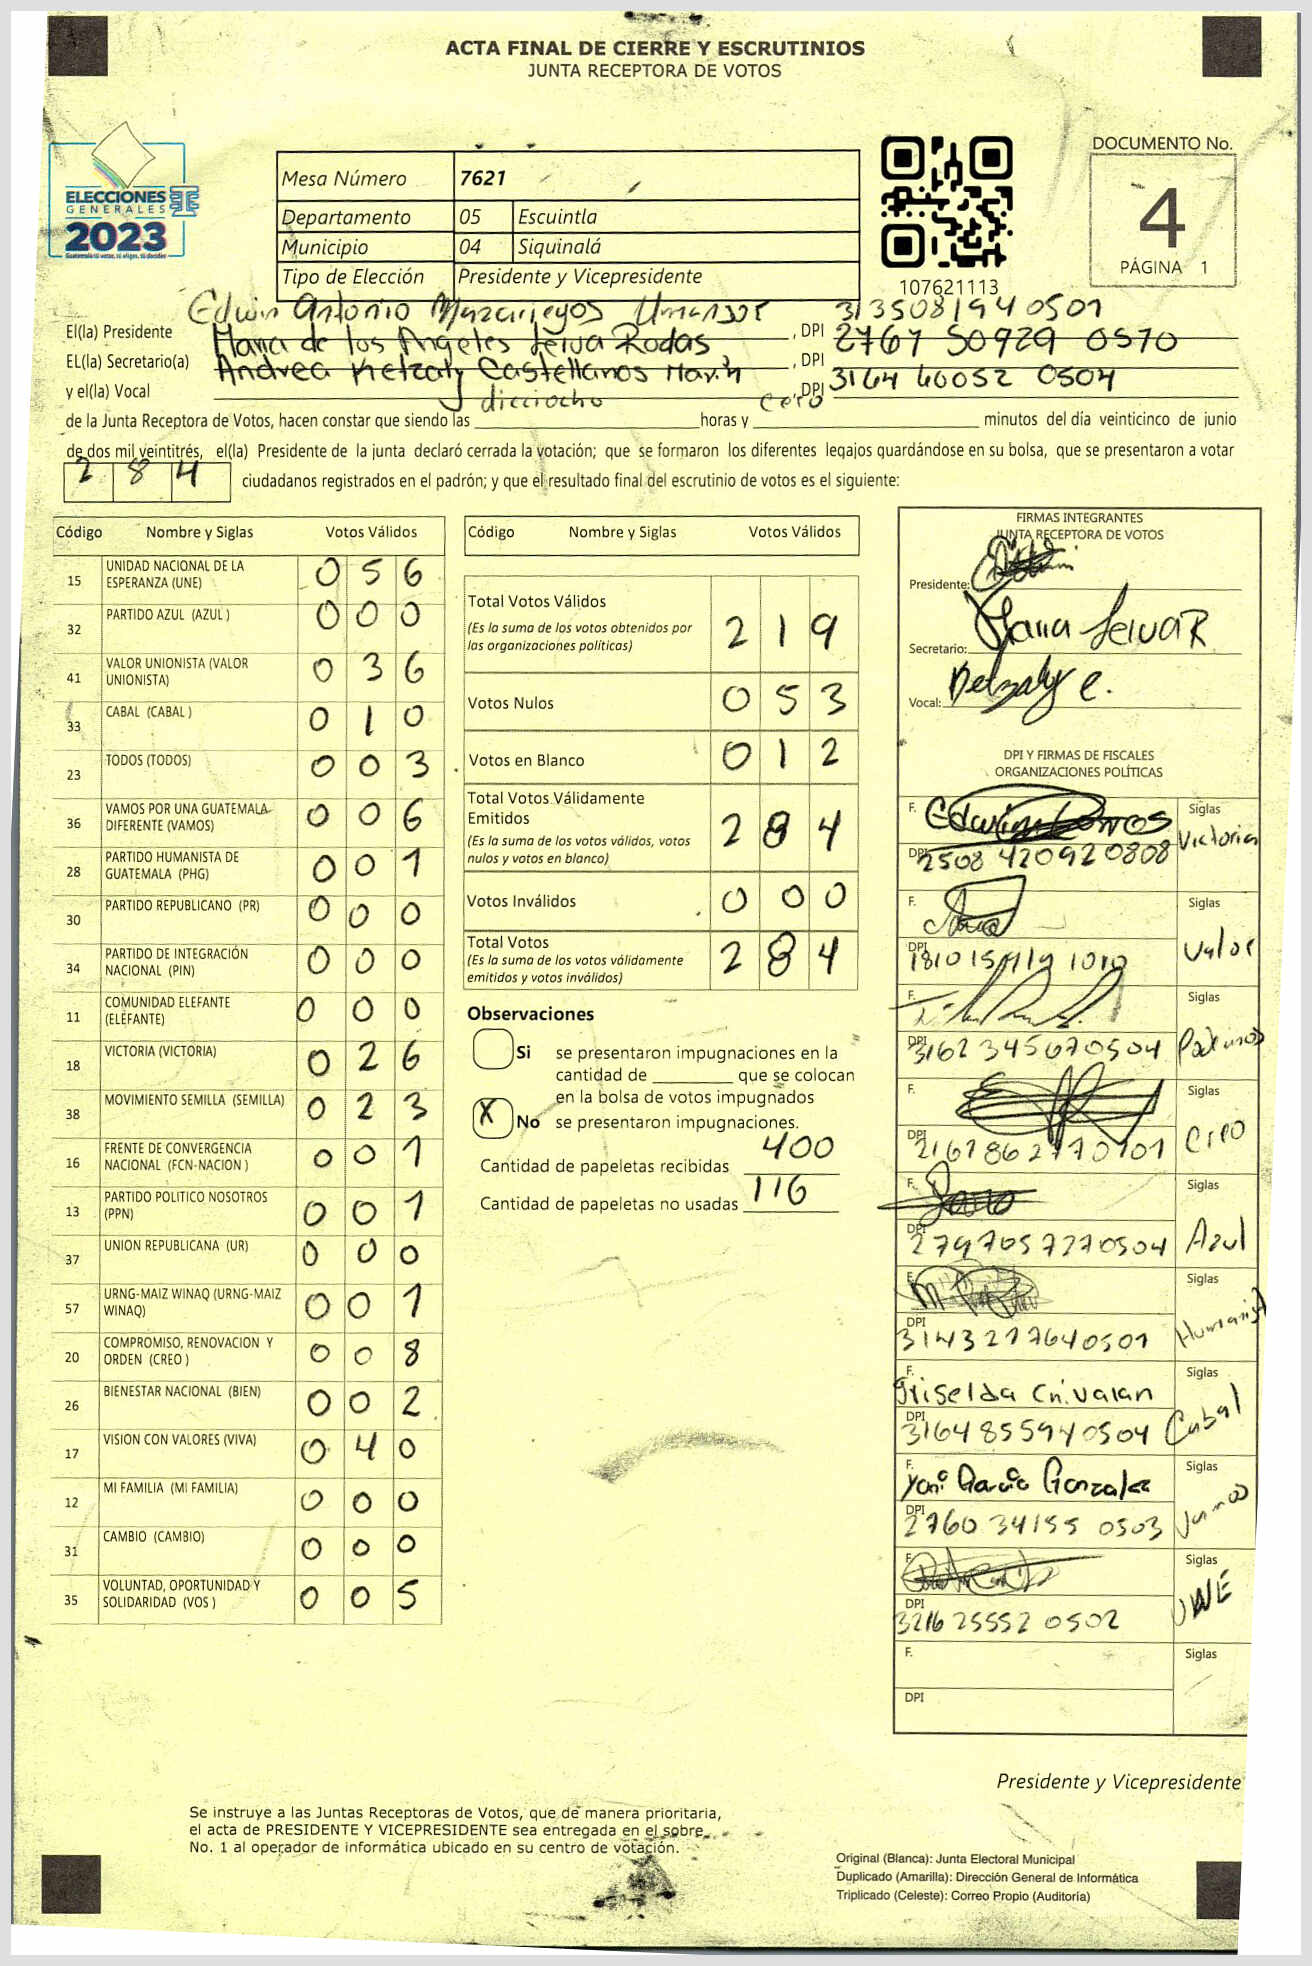 ACTA FINAL DE CIERRE Y ESCRUTINIOS
JUNTA RECEPTORA DE VOTOS
ELECCIONES
GENERALES
2023
Mesa Número 7621
Departamento 05 Escuintla
Municipio 04 Siquinalá
Tipo de Elección Presidente y Vicepresidente
107621113
DOCUMENTO No.
4
PÁGINA 1
El(la) Presidente Edwin Antonio Mazariegos Umanzor, DPI 313508194 0501
EL(la) Secretario(a) Maria de los Angeles Leiva Rodas, DPI 2767 50929 0570
y el(la) Vocal Andrea Ketzaly Castellanos Marin DPI 3164 60052 0504
de la Junta Receptora de Votos, hacen constar que siendo las dieciocho horas y cero minutos del día veinticinco de junio
de dos mil veintitrés, el(la) Presidente de la junta declaró cerrada la votación; que se formaron los diferentes legajos guardándose en su bolsa, que se presentaron a votar
2 8 4 ciudadanos registrados en el padrón; y que el resultado final del escrutinio de votos es el siguiente:
Código Nombre y Siglas Votos Válidos
15 UNIDAD NACIONAL DE LA ESPERANZA (UNE) 0 5 6
32 PARTIDO AZUL (AZUL ) 0 0 0
41 VALOR UNIONISTA (VALOR UNIONISTA) 0 3 6
33 CABAL (CABAL ) 0 1 0
23 TODOS (TODOS) 0 0 3
36 VAMOS POR UNA GUATEMALA DIFERENTE (VAMOS) 0 0 6
28 PARTIDO HUMANISTA DE GUATEMALA (PHG) 0 0 1
30 PARTIDO REPUBLICANO (PR) 0 0 0
34 PARTIDO DE INTEGRACIÓN NACIONAL (PIN) 0 0 0
11 COMUNIDAD ELEFANTE (ELEFANTE) 0 0 0
18 VICTORIA (VICTORIA) 0 2 6
38 MOVIMIENTO SEMILLA (SEMILLA) 0 2 3
16 FRENTE DE CONVERGENCIA NACIONAL (FCN-NACION ) 0 0 1
13 PARTIDO POLITICO NOSOTROS (PPN) 0 0 1
37 UNION REPUBLICANA (UR) 0 0 0
57 URNG-MAIZ WINAQ (URNG-MAIZ WINAQ) 0 0 1
20 COMPROMISO, RENOVACION Y ORDEN (CREO ) 0 0 8
26 BIENESTAR NACIONAL (BIEN) 0 0 2
17 VISION CON VALORES (VIVA) 0 4 0
12 MI FAMILIA (MI FAMILIA) 0 0 0
31 CAMBIO (CAMBIO) 0 0 0
35 VOLUNTAD, OPORTUNIDAD Y SOLIDARIDAD (VOS ) 0 0 5
Código Nombre y Siglas Votos Válidos
Total Votos Válidos 2 1 9
(Es la suma de los votos obtenidos por
las organizaciones políticas)
Votos Nulos 0 5 3
Votos en Blanco 0 1 2
Total Votos Válidamente
Emitidos 2 8 4
(Es la suma de los votos válidos, votos
nulos y votos en blanco)
Votos Inválidos 0 0 0
Total Votos 2 8 4
(Es la suma de los votos válidamente
emitidos y votos inválidos)
Observaciones
Si se presentaron impugnaciones en la
cantidad de ________ que se colocan
en la bolsa de votos impugnados
X No se presentaron impugnaciones.
Cantidad de papeletas recibidas 400
Cantidad de papeletas no usadas 116
FIRMAS INTEGRANTES
JUNTA RECEPTORA DE VOTOS
Presidente:
Secretario: Maria Leiva R
Vocal: Ketzaly C.
DPI Y FIRMAS DE FISCALES
ORGANIZACIONES POLÍTICAS
F. Siglas Victoria
DPI 2508 42092 0808
F. Siglas Valor
DPI
F. Siglas Podemos
DPI 3162 34567 0504
F. Siglas Creo
DPI
F. Siglas Azul
DPI 2797057270504
F. Siglas Humanista
DPI 3143217640501
F. Griselda Siglas Cabal
DPI 3164855940504
F. Garcia Gonzalez Siglas Vamos
DPI 2760 34155 0503
F. Siglas UNE
DPI 3216 25552 0502
F. Siglas
DPI
Presidente y Vicepresidente
Se instruye a las Juntas Receptoras de Votos, que de manera prioritaria,
el acta de PRESIDENTE Y VICEPRESIDENTE sea entregada en el sobre
No. 1 al operador de informática ubicado en su centro de votación.
Original (Blanca): Junta Electoral Municipal
Duplicado (Amarilla): Dirección General de Informática
Triplicado (Celeste): Correo Propio (Auditoría)